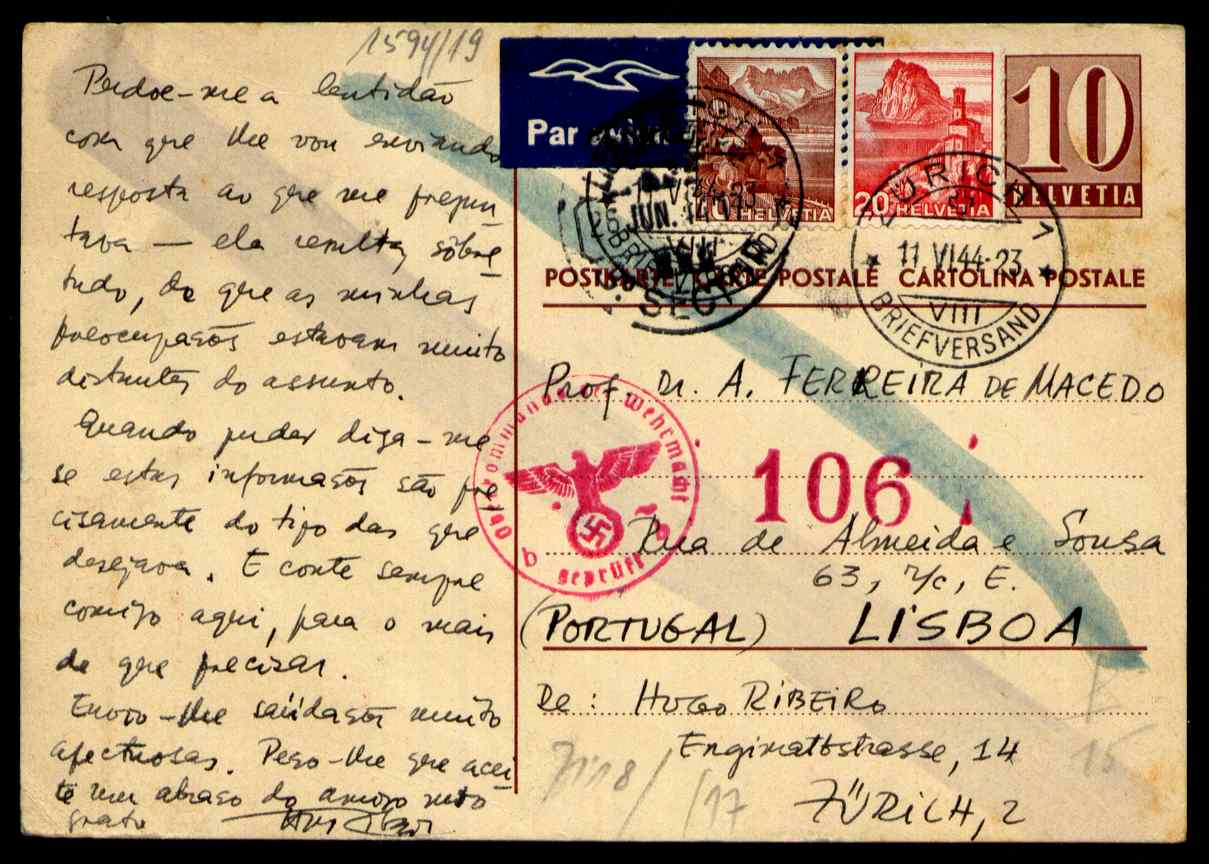 1594/19
Perdoe-me a lentidão
com que lhe vou enviando
resposta ao que me pregun-
tava — ela resulta, sôbre-
tudo, de que as minhas
preocupações estavam muito
distantes do assunto.
Quando puder diga-me
se estas informações são pre-
cisamente do tipo das que
desejava. E conte sempre
comigo aqui, para o mais
de que precisar.
Envio-lhe saüdações muito
afectuosas. Peço-lhe que acei-
te um abraço do amigo mto
grato
Par avion
10 HELVETIA
20 HELVETIA
10
HELVETIA
POSTKARTE CARTE POSTALE CARTOLINA POSTALE
ZÜRICH 1
11 VI 44-23
VIII
BRIEFVERSAND
26 JUN. 44
Prof. Dr. A. FERREIRA DE MACEDO
Oberkommando der Wehrmacht
b geprüft b
106
Rua de Almeida e Sousa
63, r/c, E.
(PORTUGAL) LISBOA
De: HUGO RIBEIRO
Engimattstrasse, 14
ZÜRICH, 2
/17
15